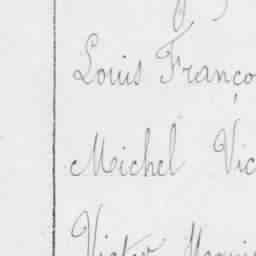 Louis Franço
Michel Vic
Victor